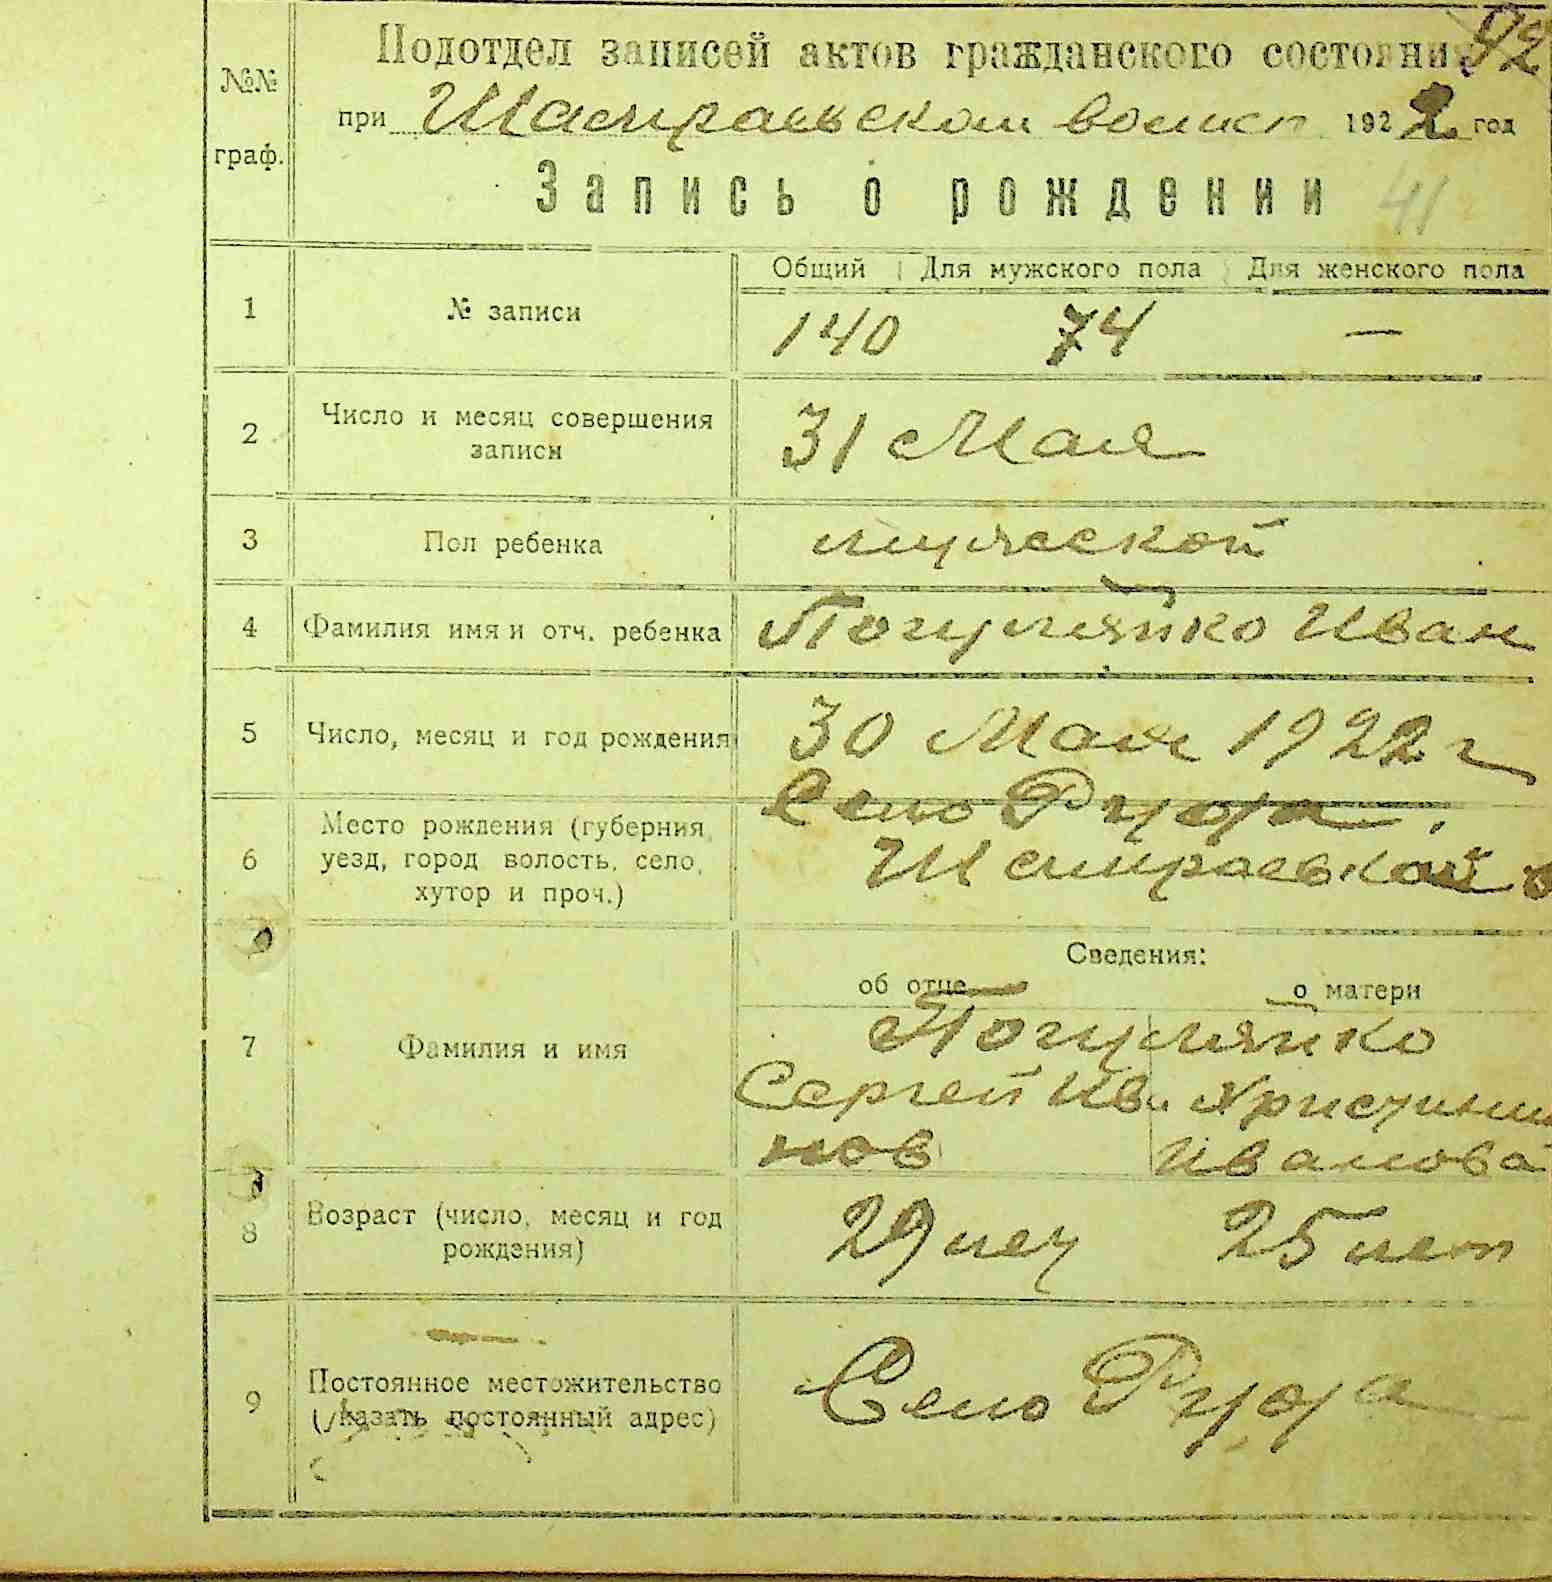 №№ граф.
Подотдел записей актов гражданского состояни 92
при Шампраевском волисп 1922 год
Запись о рождении 41
Общий Для мужского пола Для женского пола
1 № записи 140 74 —
2 Число и месяц совершения записи 31 Мая
3 Пол ребенка мужеской
4 Фамилия имя и отч. ребенка Погуляйко Иван
5 Число, месяц и год рождения 30 Мая 1922 г
6 Место рождения (губерния, уезд, город волость, село, хутор и проч.) Село Рудка.
Шампраевской в
Сведения:
об отце о матери
7 Фамилия и имя Погуляйко
Сергей Ива Христини
нов Иванова
8 Возраст (число, месяц и год рождения) 29 лет 25 лет
9 Постоянное местожительство (указать постоянный адрес) Село